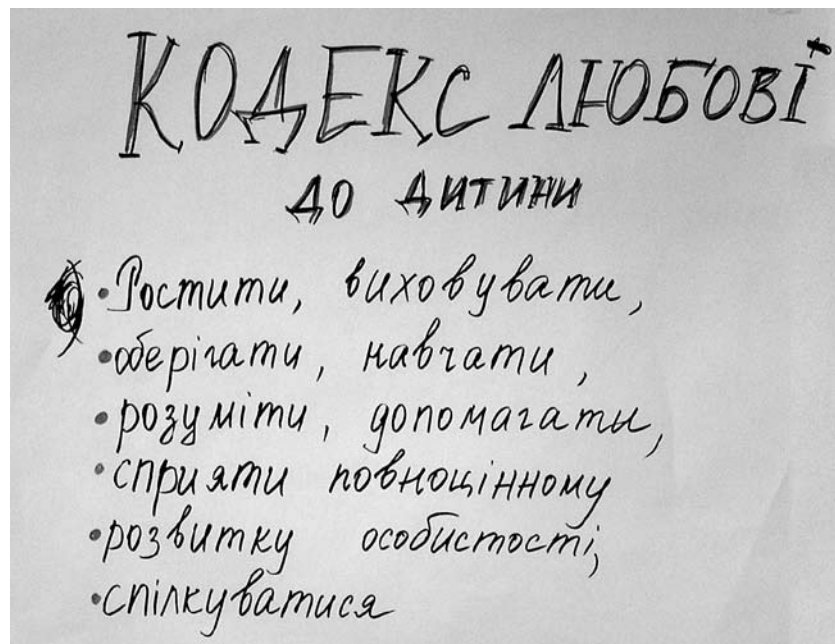 КОДЕКС ЛЮБОВІ
ДО ДИТИНИ
• Ростити, виховувати,
• оберігати, навчати,
• розуміти, допомагати,
• сприяти повноцінному
• розвитку особистості,
• спілкуватися